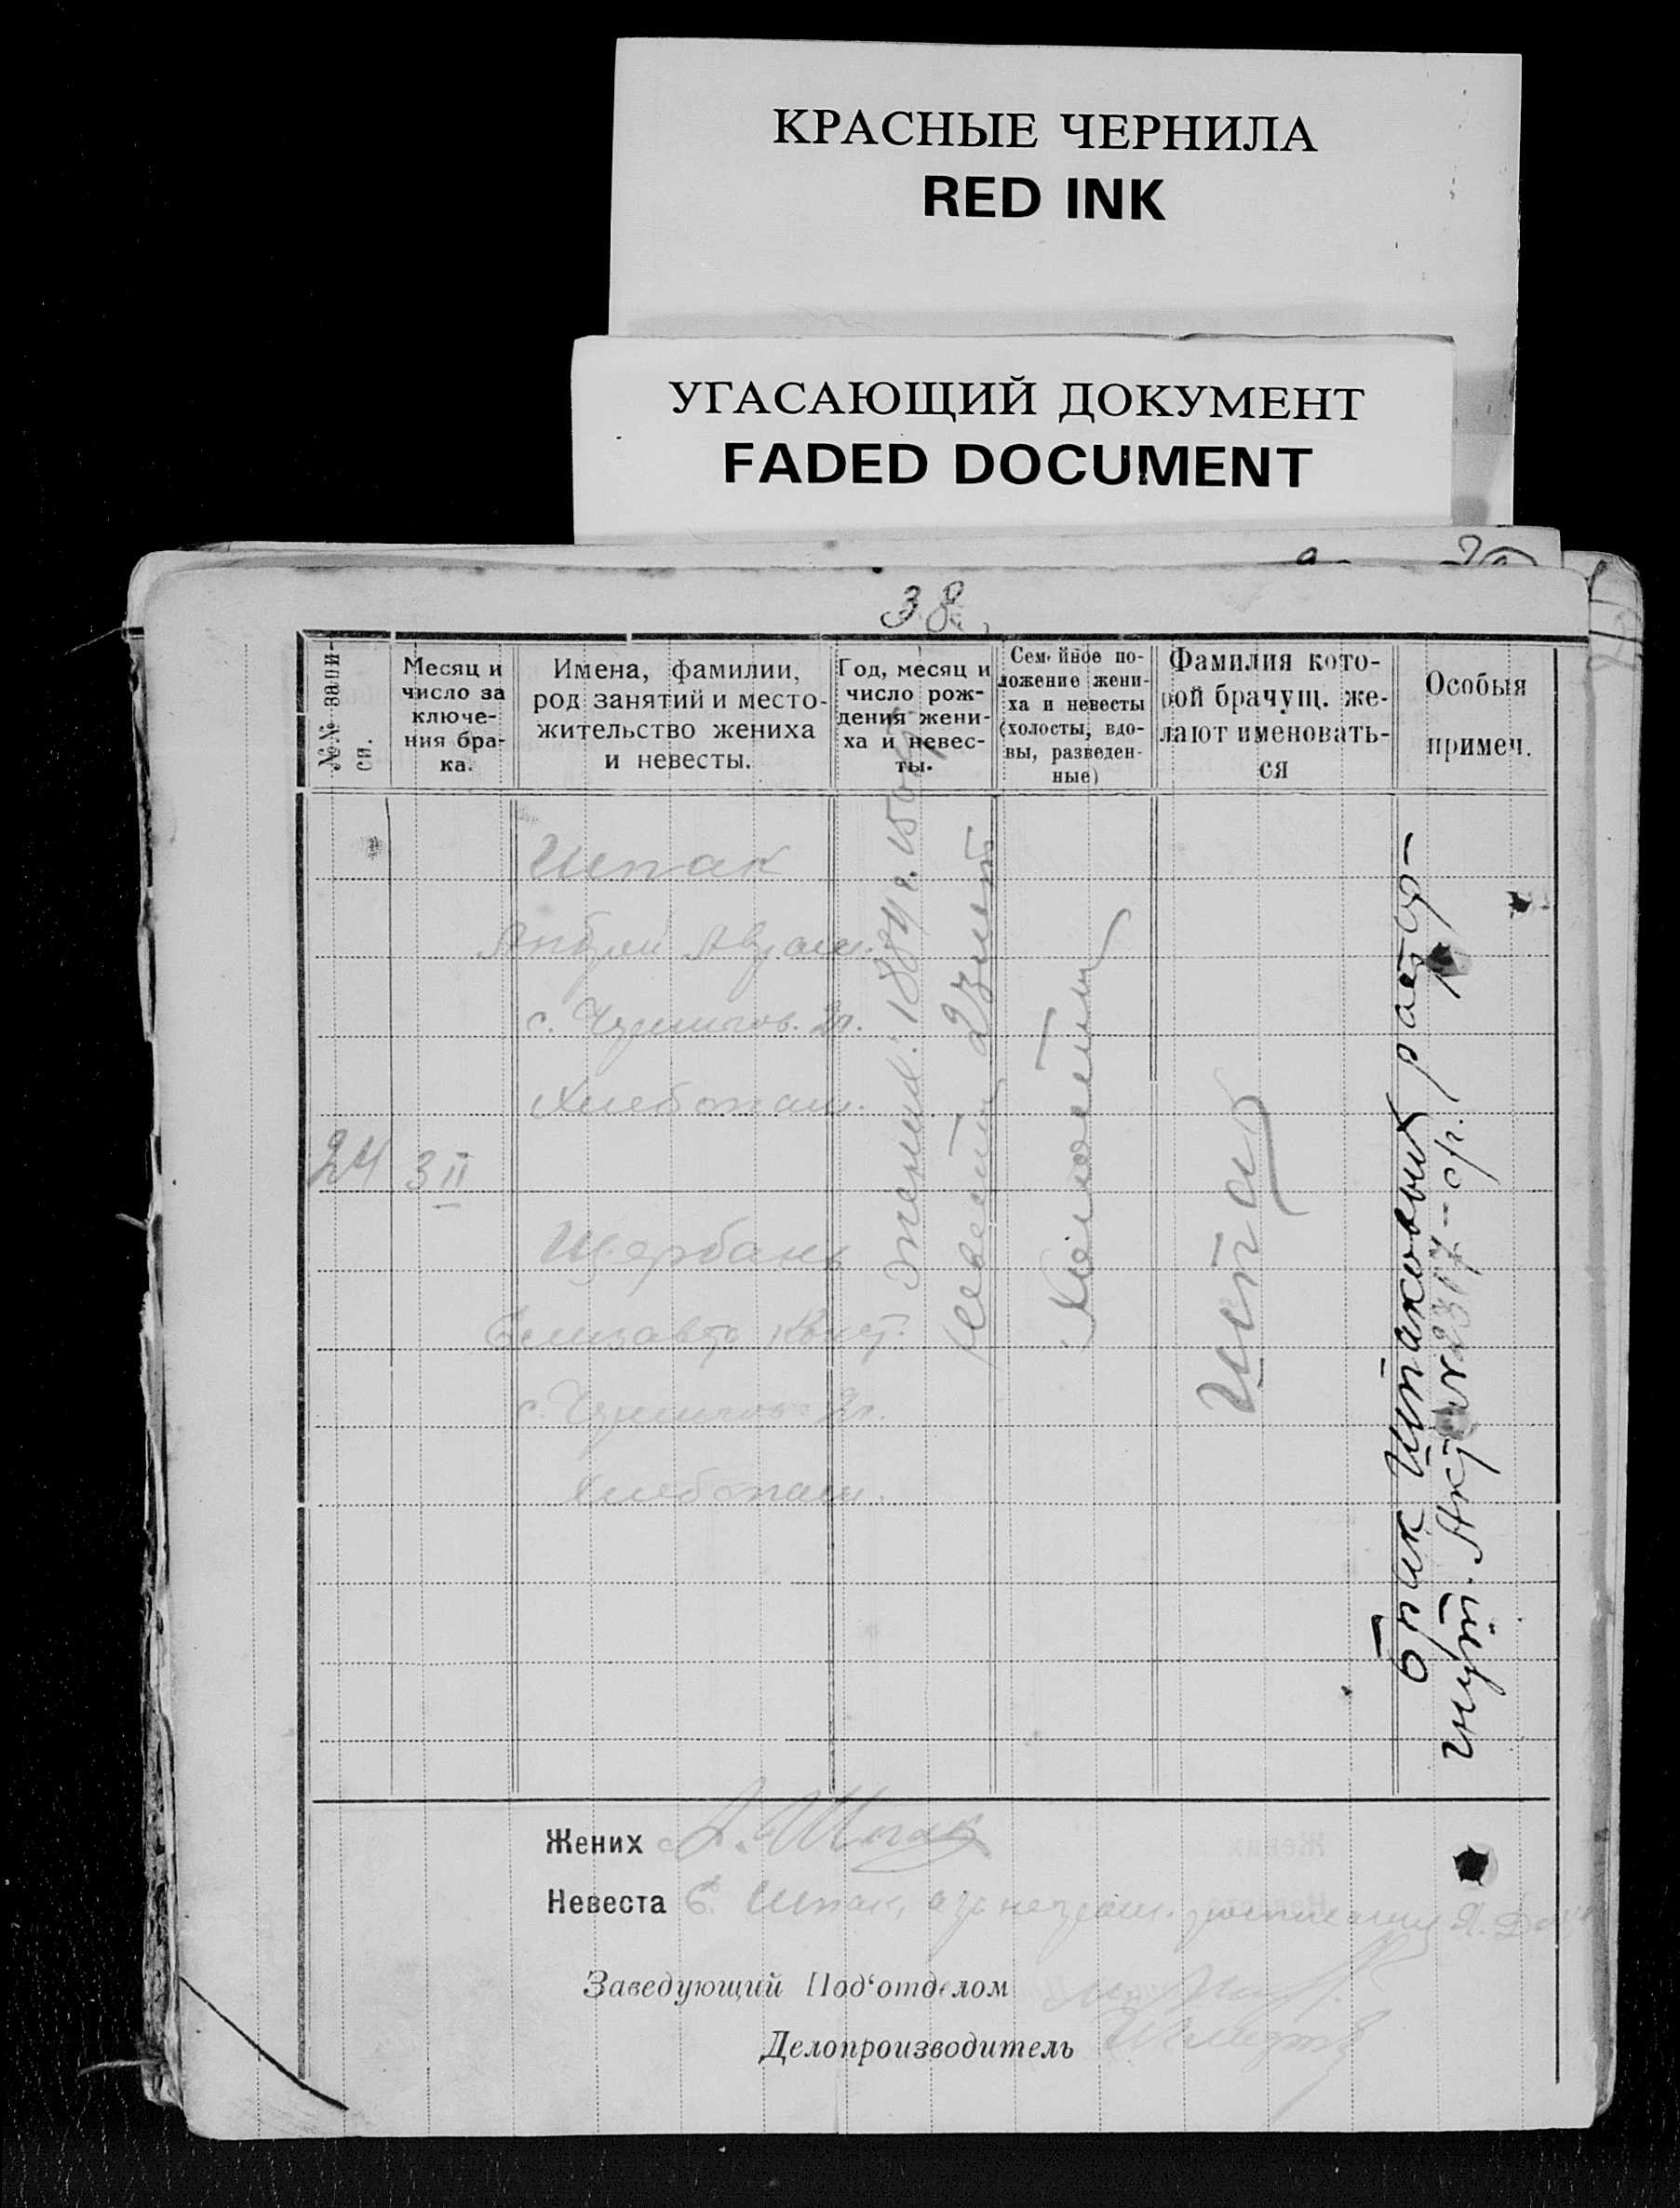 КРАСНЫЕ ЧЕРНИЛА
RED INK
УГАСАЮЩИЙ ДОКУМЕНТ
FADED DOCUMENT
38
№№ запи-
си.
Месяц и
число за
ключе-
ния бра-
ка.
Имена, фамилии,
род занятий и место-
жительство жениха
и невесты.
Год, месяц и
число рож-
дения жени-
ха и невес-
ты.
Семейное по-
ложение жени-
ха и невесты
(холосты, вдо-
вы, разведен-
ные)
Фамилия кото-
рой брачущ. же-
лают именовать-
ся
Особыя
примеч.
24
3 II
Шпак
Андрей Аврам.
с.
Хлебопаш.
Щербань
Елизавта Конст.
с.
Хлебопаш.
жених. 1884 г.
невеста 23 лет
Холостые
Шпак
брак Шпаковых растор-
гнут. Акт №
Жених А. Шпак
Невеста Е. Шпак, а за неграм.
Заведующий Под‘отделом
Делопроизводитель